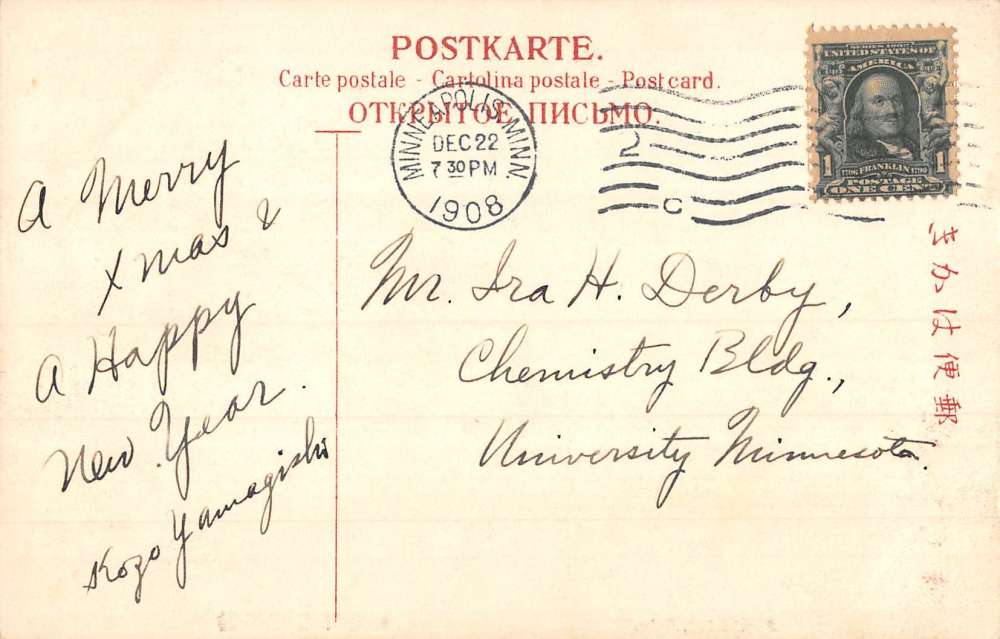 POSTKARTE.
Carte postale - Cartolina postale - Post card.
ОТКРЫТОЕ ПИСЬМО.
MINNEAPOLIS, MINN.
DEC 22
7 30 PM
1908
2
C
SERIES 1902
UNITED STATES OF
AMERICA
1
1
1706 FRANKLIN 1790
POSTAGE
ONE CENT
きかは便郵
A Merry
Xmas &
A Happy
New Year.
Kozo Yamagishi
Mr. Ira H. Derby,
Chemistry Bldg.,
University Minnesota.